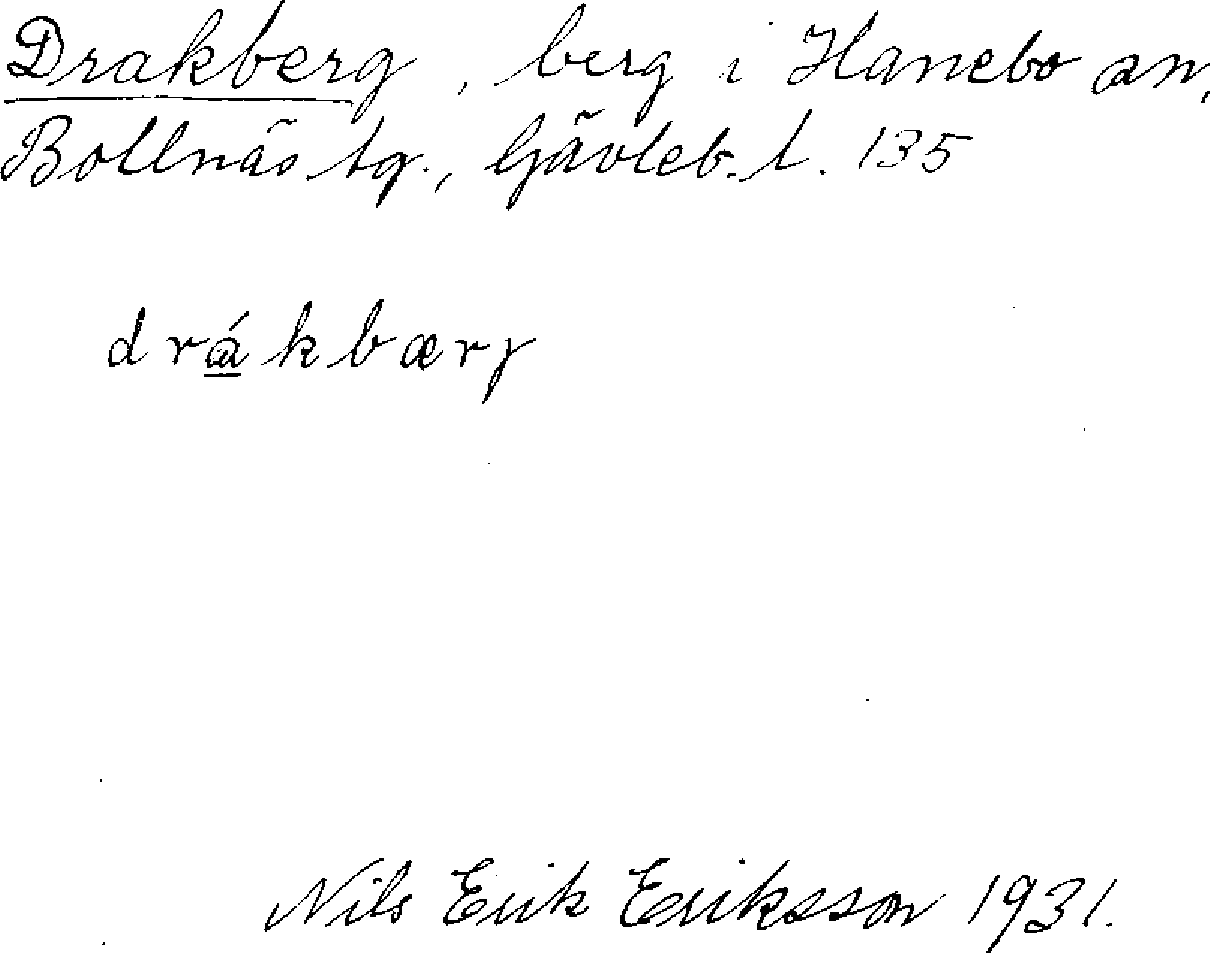 Drakberg, berg i Hanebo sn,
Bollnäs tg., Gävleb. l. 135
drákbærj
Nils Erik Eriksson 1931.